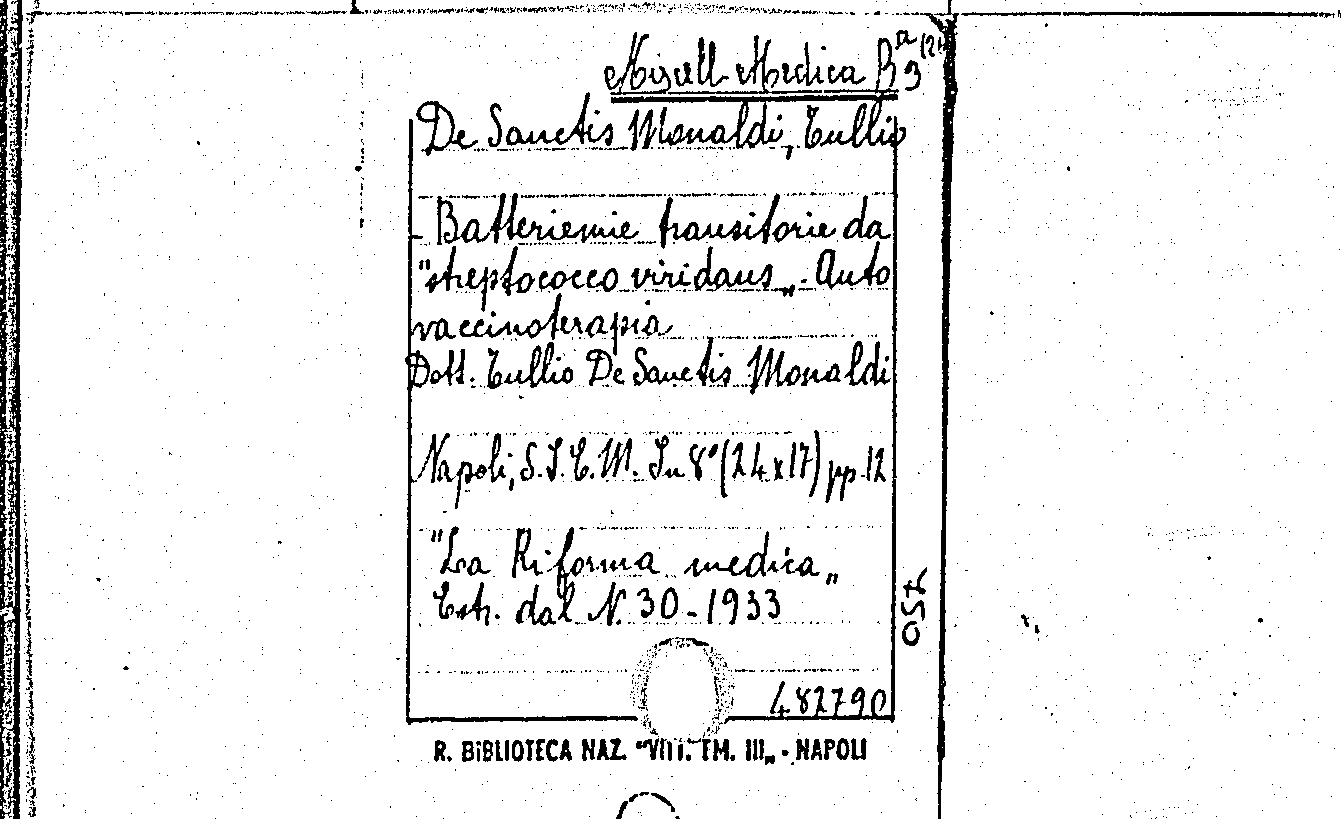 Miscell. Medica Ba 9 (21
De Sanctis Monaldi, Tullio
- Batteriemie transitorie da
"streptococco viridans„. Auto
vaccinoterapia
Dott. Tullio De Sanctis Monaldi
Napoli, S.I.E.M. In 8° (24x17) pp. 12
"La Riforma medica„
Estr. dal N. 30 - 1933
450
482790
R. BIBLIOTECA NAZ. "VITT. EM. III„ - NAPOLI